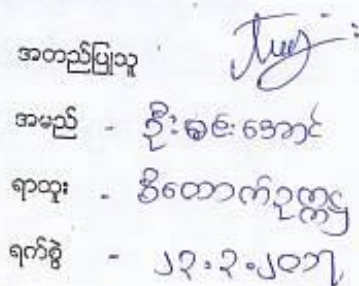 အတည်ပြုသူ
အမည် - ဦးစွဦးအောင်
ရာထူး - ဒီတောက်ဥက္ကဋ္ဌ
ရက်စွဲ - ၂၃.၃.၂၀၁၇